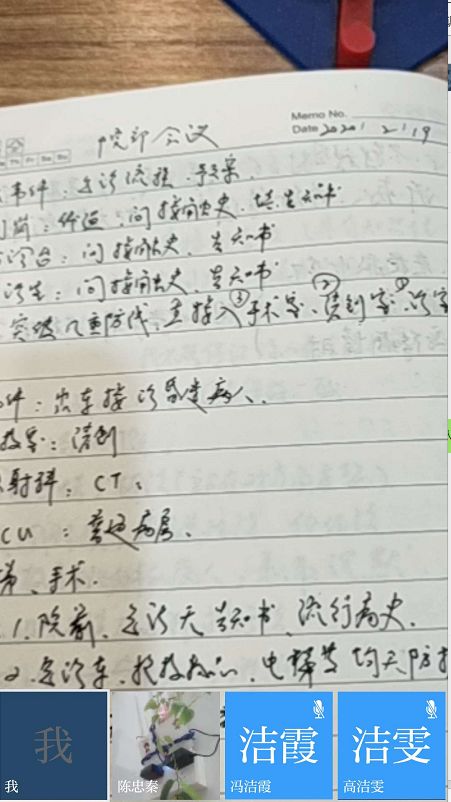 Memo No.
Date 2020 2 19
院部会议
事件:急诊流程、预案.
岗:体温、问接触史、填告知书
诊台:问接触史、告知书
诊生:问接触史、告知书
突破几重防线,直接入③手术室、②清创室、①诊室
件:出车接诊昏迷病人、
清创
射科:CT、
CU:普通病房、
手术.
1.院前、急诊无告知书、流行病史.
2.急诊车、抢救 、电梯等均无防护
我
我
陈忠秦
洁霞
冯洁霞
洁雯
高洁雯